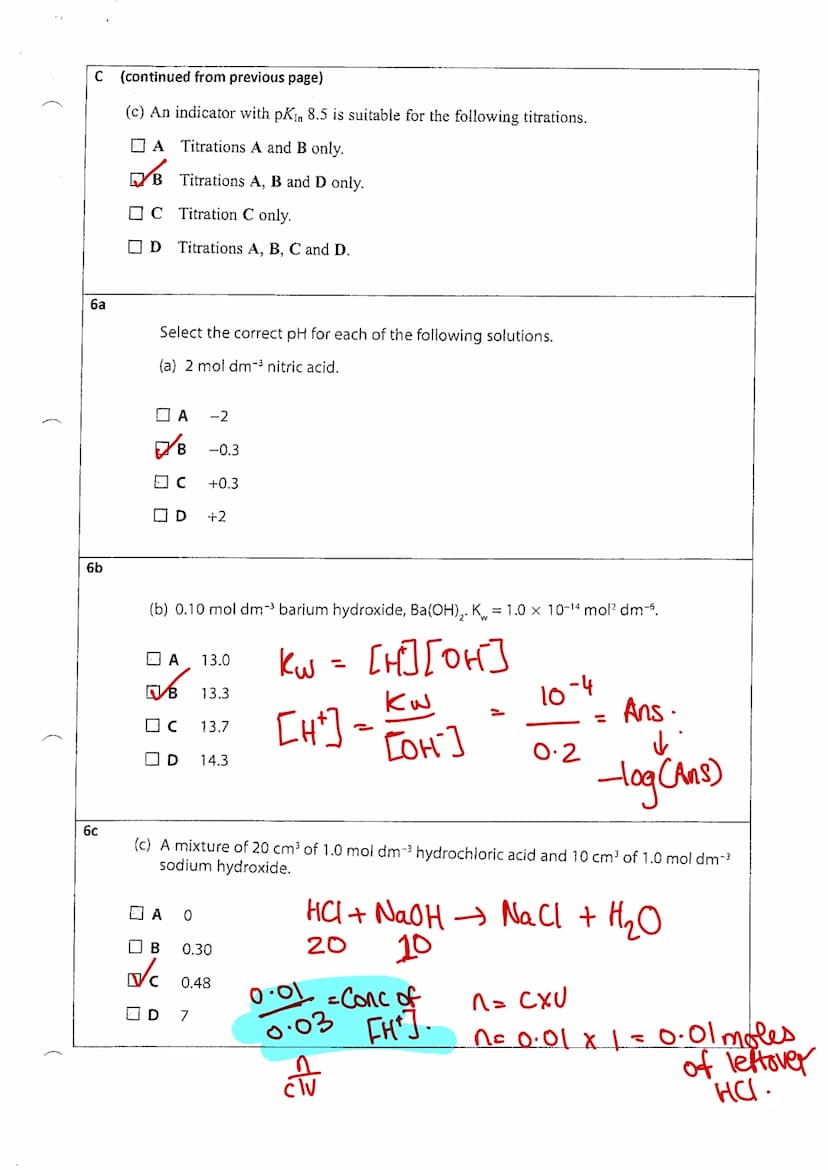 C (continued from previous page)
(c) An indicator with pK_In 8.5 is suitable for the following titrations.
A Titrations A and B only.
B Titrations A, B and D only.
C Titration C only.
D Titrations A, B, C and D.
6a
Select the correct pH for each of the following solutions.
(a) 2 mol dm⁻³ nitric acid.
A −2
B −0.3
C +0.3
D +2
6b
(b) 0.10 mol dm⁻³ barium hydroxide, Ba(OH)₂. K_w = 1.0 × 10⁻¹⁴ mol² dm⁻⁶.
A 13.0
B 13.3
C 13.7
D 14.3
Kw = [H⁺][OH⁻]
[H⁺] = Kw / [OH⁻] = 10⁻⁴ / 0.2 = Ans.
↓
−log(Ans)
6c
(c) A mixture of 20 cm³ of 1.0 mol dm⁻³ hydrochloric acid and 10 cm³ of 1.0 mol dm⁻³
sodium hydroxide.
A 0
B 0.30
C 0.48
D 7
HCl + NaOH → NaCl + H₂O
20 10
0.01 / 0.03 = Conc of [H⁺].
n / c|v
n = C×V
n = 0.01 × 1 = 0.01 moles
of leftover
HCl.